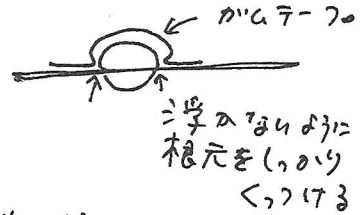 ガムテープ
浮かないように
根元をしっかり
くっつける